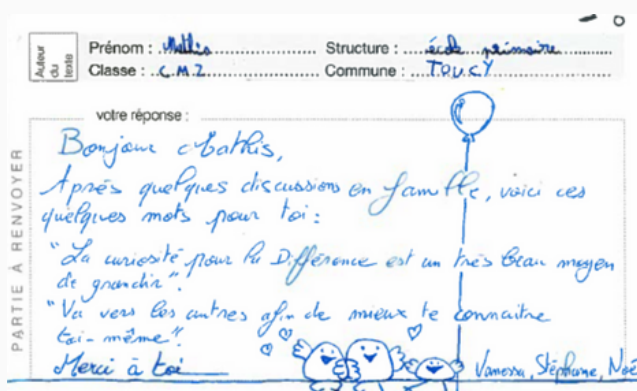 Auteur du texte
Prénom : Mathis Structure : école primaire
Classe : CM2 Commune : TOUCY
votre réponse :
PARTIE À RENVOYER
Bonjour Mathis,
Après quelques discussions en famille, voici ces
quelques mots pour toi :
"La curiosité pour la Différence est un très beau moyen
de grandir".
"Va vers les autres afin de mieux te connaitre
toi-même".
Merci à toi
Vanessa, Stéphane, Noé